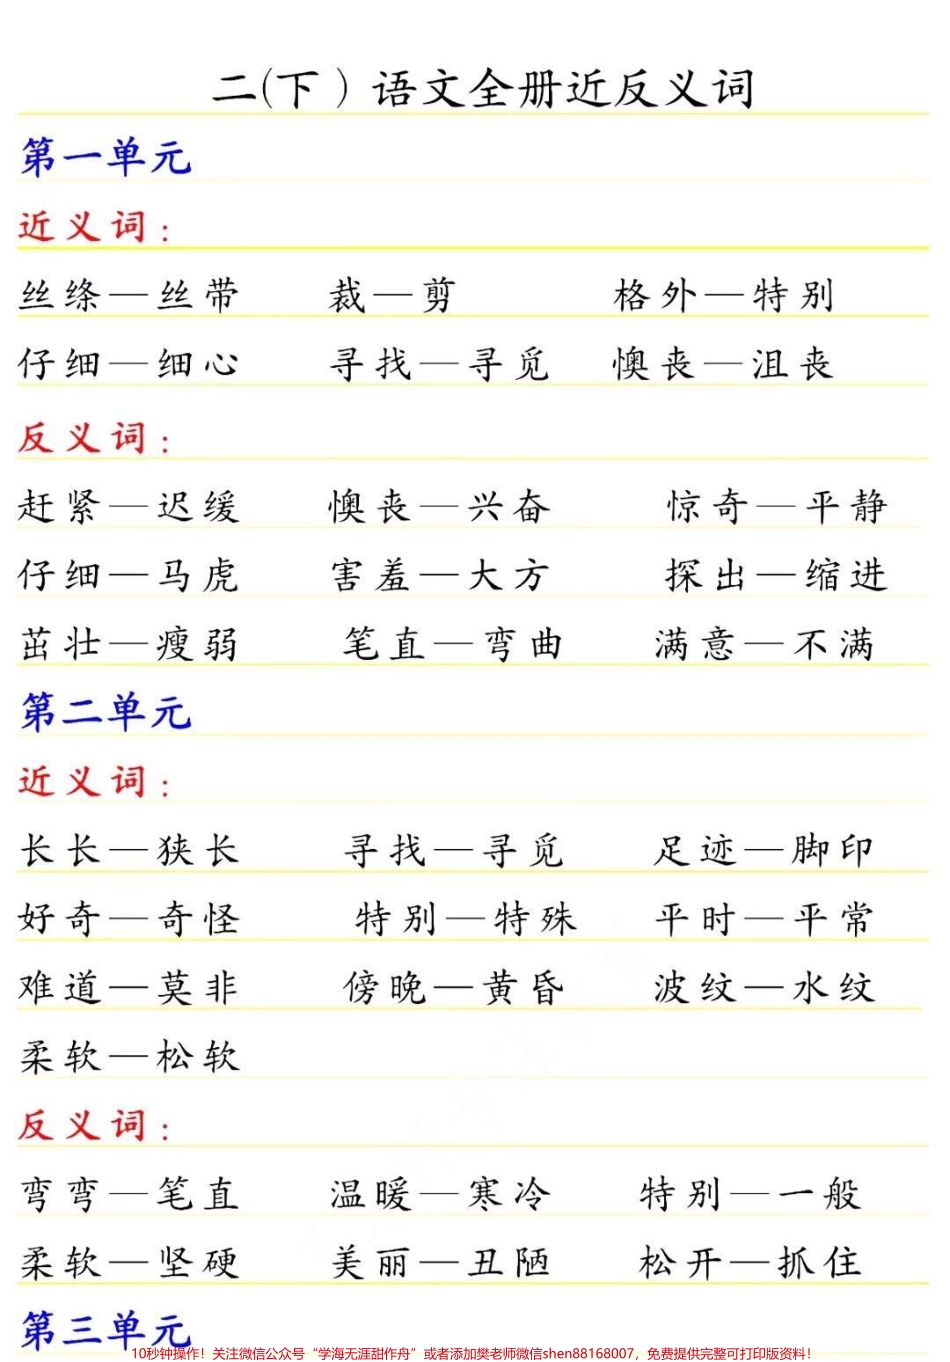 二(下）语文全册近反义词
第一单元
近义词：
丝绦—丝带 裁—剪 格外—特别
仔细—细心 寻找—寻觅 懊丧—沮丧
反义词：
赶紧—迟缓 懊丧—兴奋 惊奇—平静
仔细—马虎 害羞—大方 探出—缩进
茁壮—瘦弱 笔直—弯曲 满意—不满
第二单元
近义词：
长长—狭长 寻找—寻觅 足迹—脚印
好奇—奇怪 特别—特殊 平时—平常
难道—莫非 傍晚—黄昏 波纹—水纹
柔软—松软
反义词：
弯弯—笔直 温暖—寒冷 特别—一般
柔软—坚硬 美丽—丑陋 松开—抓住
第三单元
10秒钟操作！关注微信公众号“学海无涯甜作舟”或者添加樊老师微信shen88168007，免费提供完整可打印版资料！